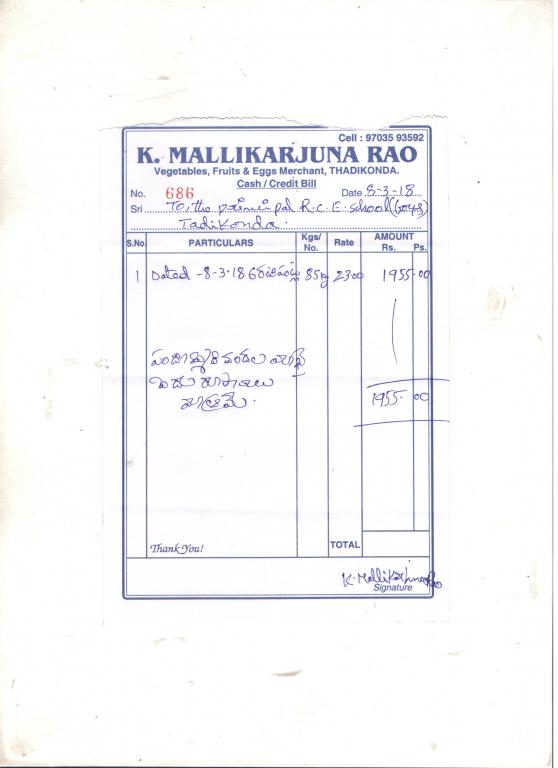 Cell : 97035 93592
K. MALLIKARJUNA RAO
Vegetables, Fruits & Eggs Merchant, THADIKONDA.
Cash / Credit Bill
No. 686 Date 8-3-18
Sri To, the principal R.C.E. school
Tadikonda.
S.No. PARTICULARS Kgs/ No. Rate AMOUNT Rs. Ps.
1 Dated -8-3-18 85kg 23 00 1955-00
రూపాయలు
మాత్రమే.
1955- 00
Thank You! TOTAL
K. Mallikarjuna Rao
Signature